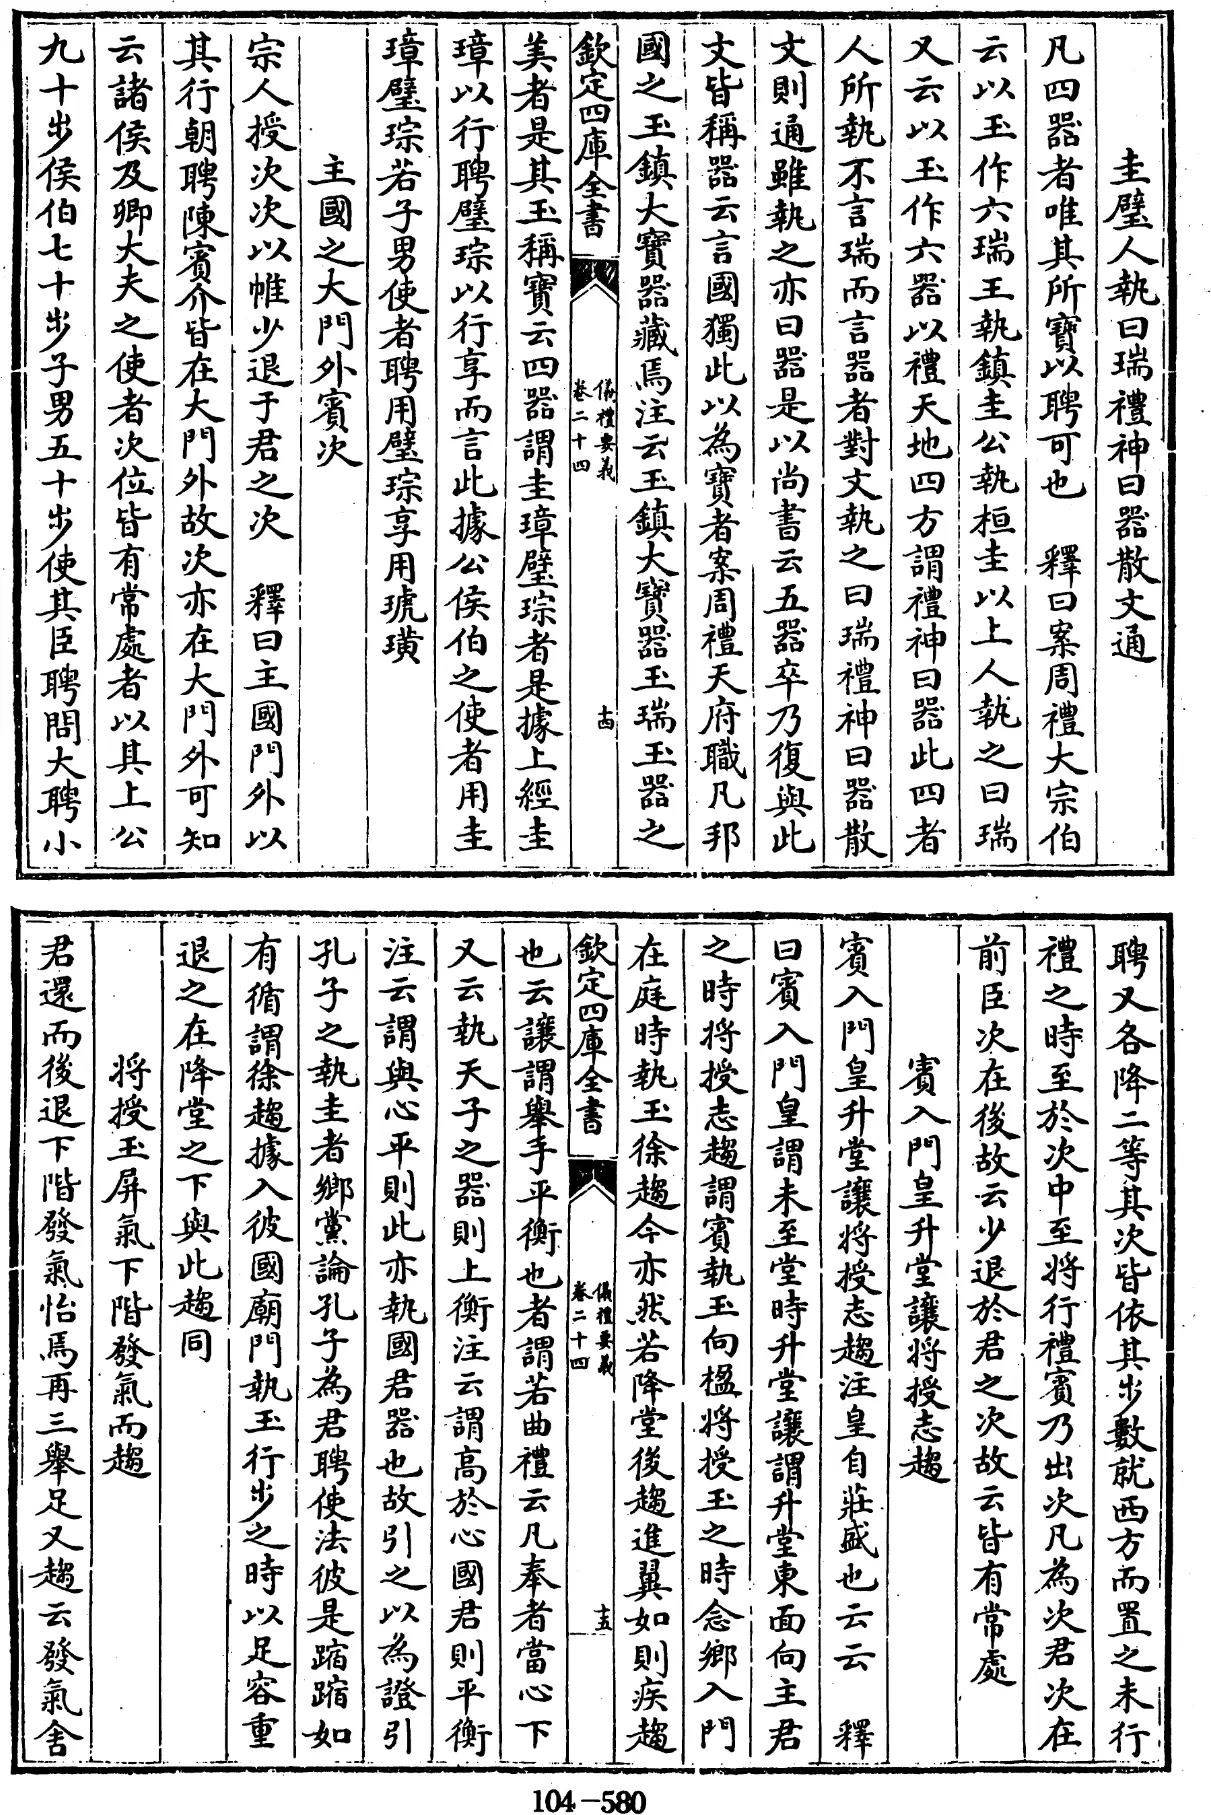 圭璧人執曰瑞禮神曰器散文通
凡四器者唯其所寶以聘可也　釋曰案周禮大宗伯
云以玉作六瑞王執鎮圭公執桓圭以上人執之曰瑞
又云以玉作六器以禮天地四方謂禮神曰器此四者
人所執不言瑞而言器者對文執之曰瑞禮神曰器散
文則通雖執之亦曰器是以尚書云五器卒乃復與此
文皆稱器云言國獨此以為寶者案周禮天府職凡邦
國之玉鎮大寶器藏焉注云玉鎮大寶器玉瑞玉器之
欽定四庫全書　儀禮要義卷二十四　十四
美者是其玉稱寶云四器謂圭璋璧琮者是據上經圭
璋以行聘璧琮以行享而言此據公侯伯之使者用圭
璋璧琮若子男使者聘用璧琮享用琥璜
主國之大門外賓次
宗人授次次以帷少退于君之次　釋曰主國門外以
其行朝聘陳賓介皆在大門外故次亦在大門外可知
云諸侯及卿大夫之使者次位皆有常處者以其上公
九十步侯伯七十步子男五十步使其臣聘問大聘小
聘又各降二等其次皆依其步數就西方而置之未行
禮之時至於次中至將行禮賓乃出次凡為次君次在
前臣次在後故云少退於君之次故云皆有常處
賓入門皇升堂讓將授志趨
賓入門皇升堂讓將授志趨注皇自莊盛也云云　釋
曰賓入門皇謂未至堂時升堂讓謂升堂東面向主君
之時將授志趨謂賓執玉向楹將授玉之時念鄉入門
在庭時執玉徐趨今亦然若降堂後趨進翼如則疾趨
欽定四庫全書　儀禮要義卷二十四　十五
也云讓謂舉手平衡也者謂若曲禮云凡奉者當心下
又云執天子之器則上衡注云謂高於心國君則平衡
注云謂與心平則此亦執國君器也故引之以為證引
孔子之執圭者鄉黨論孔子為君聘使法彼是踧踖如
有循謂徐趨據入彼國廟門執玉行步之時以足容重
退之在降堂之下與此趨同
將授玉屏氣下階發氣而趨
君還而後退下階發氣怡焉再三舉足又趨云發氣舍
104-580